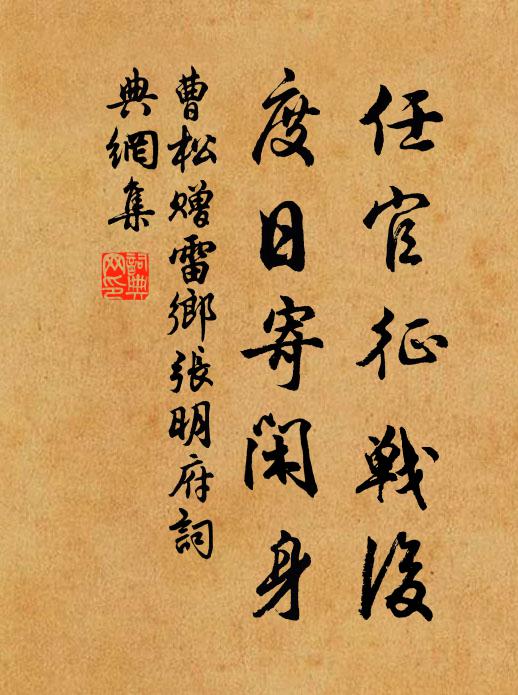 任官征戰後
度日寄閑身
曹松贈雷鄉張明府詞
典網集
詞典
网印